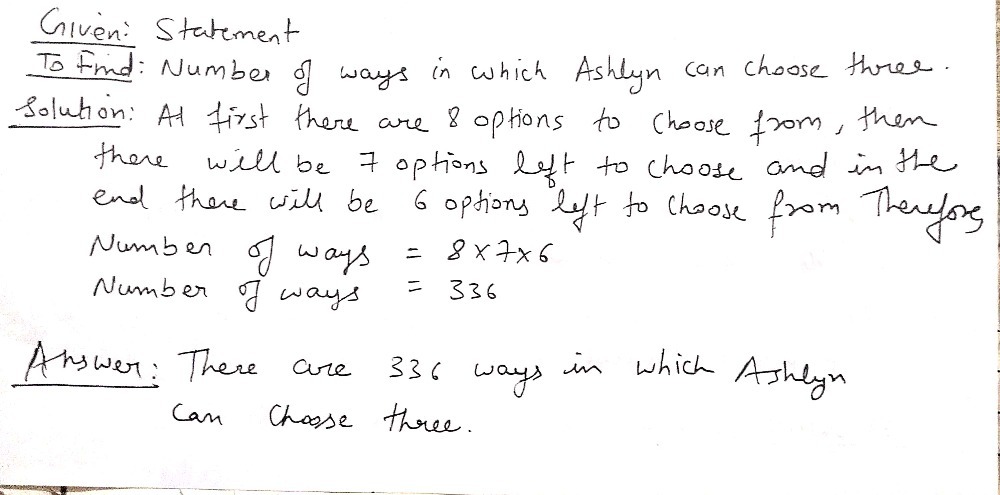 Given: Statement
To Find: Number of ways in which Ashlyn can choose three.
Solution: At first there are 8 options to choose from, then
there will be 7 options left to choose and in the
end there will be 6 options left to choose from Therefore,
Number of ways = 8×7×6
Number of ways = 336
Answer: There are 336 ways in which Ashlyn
can choose three.